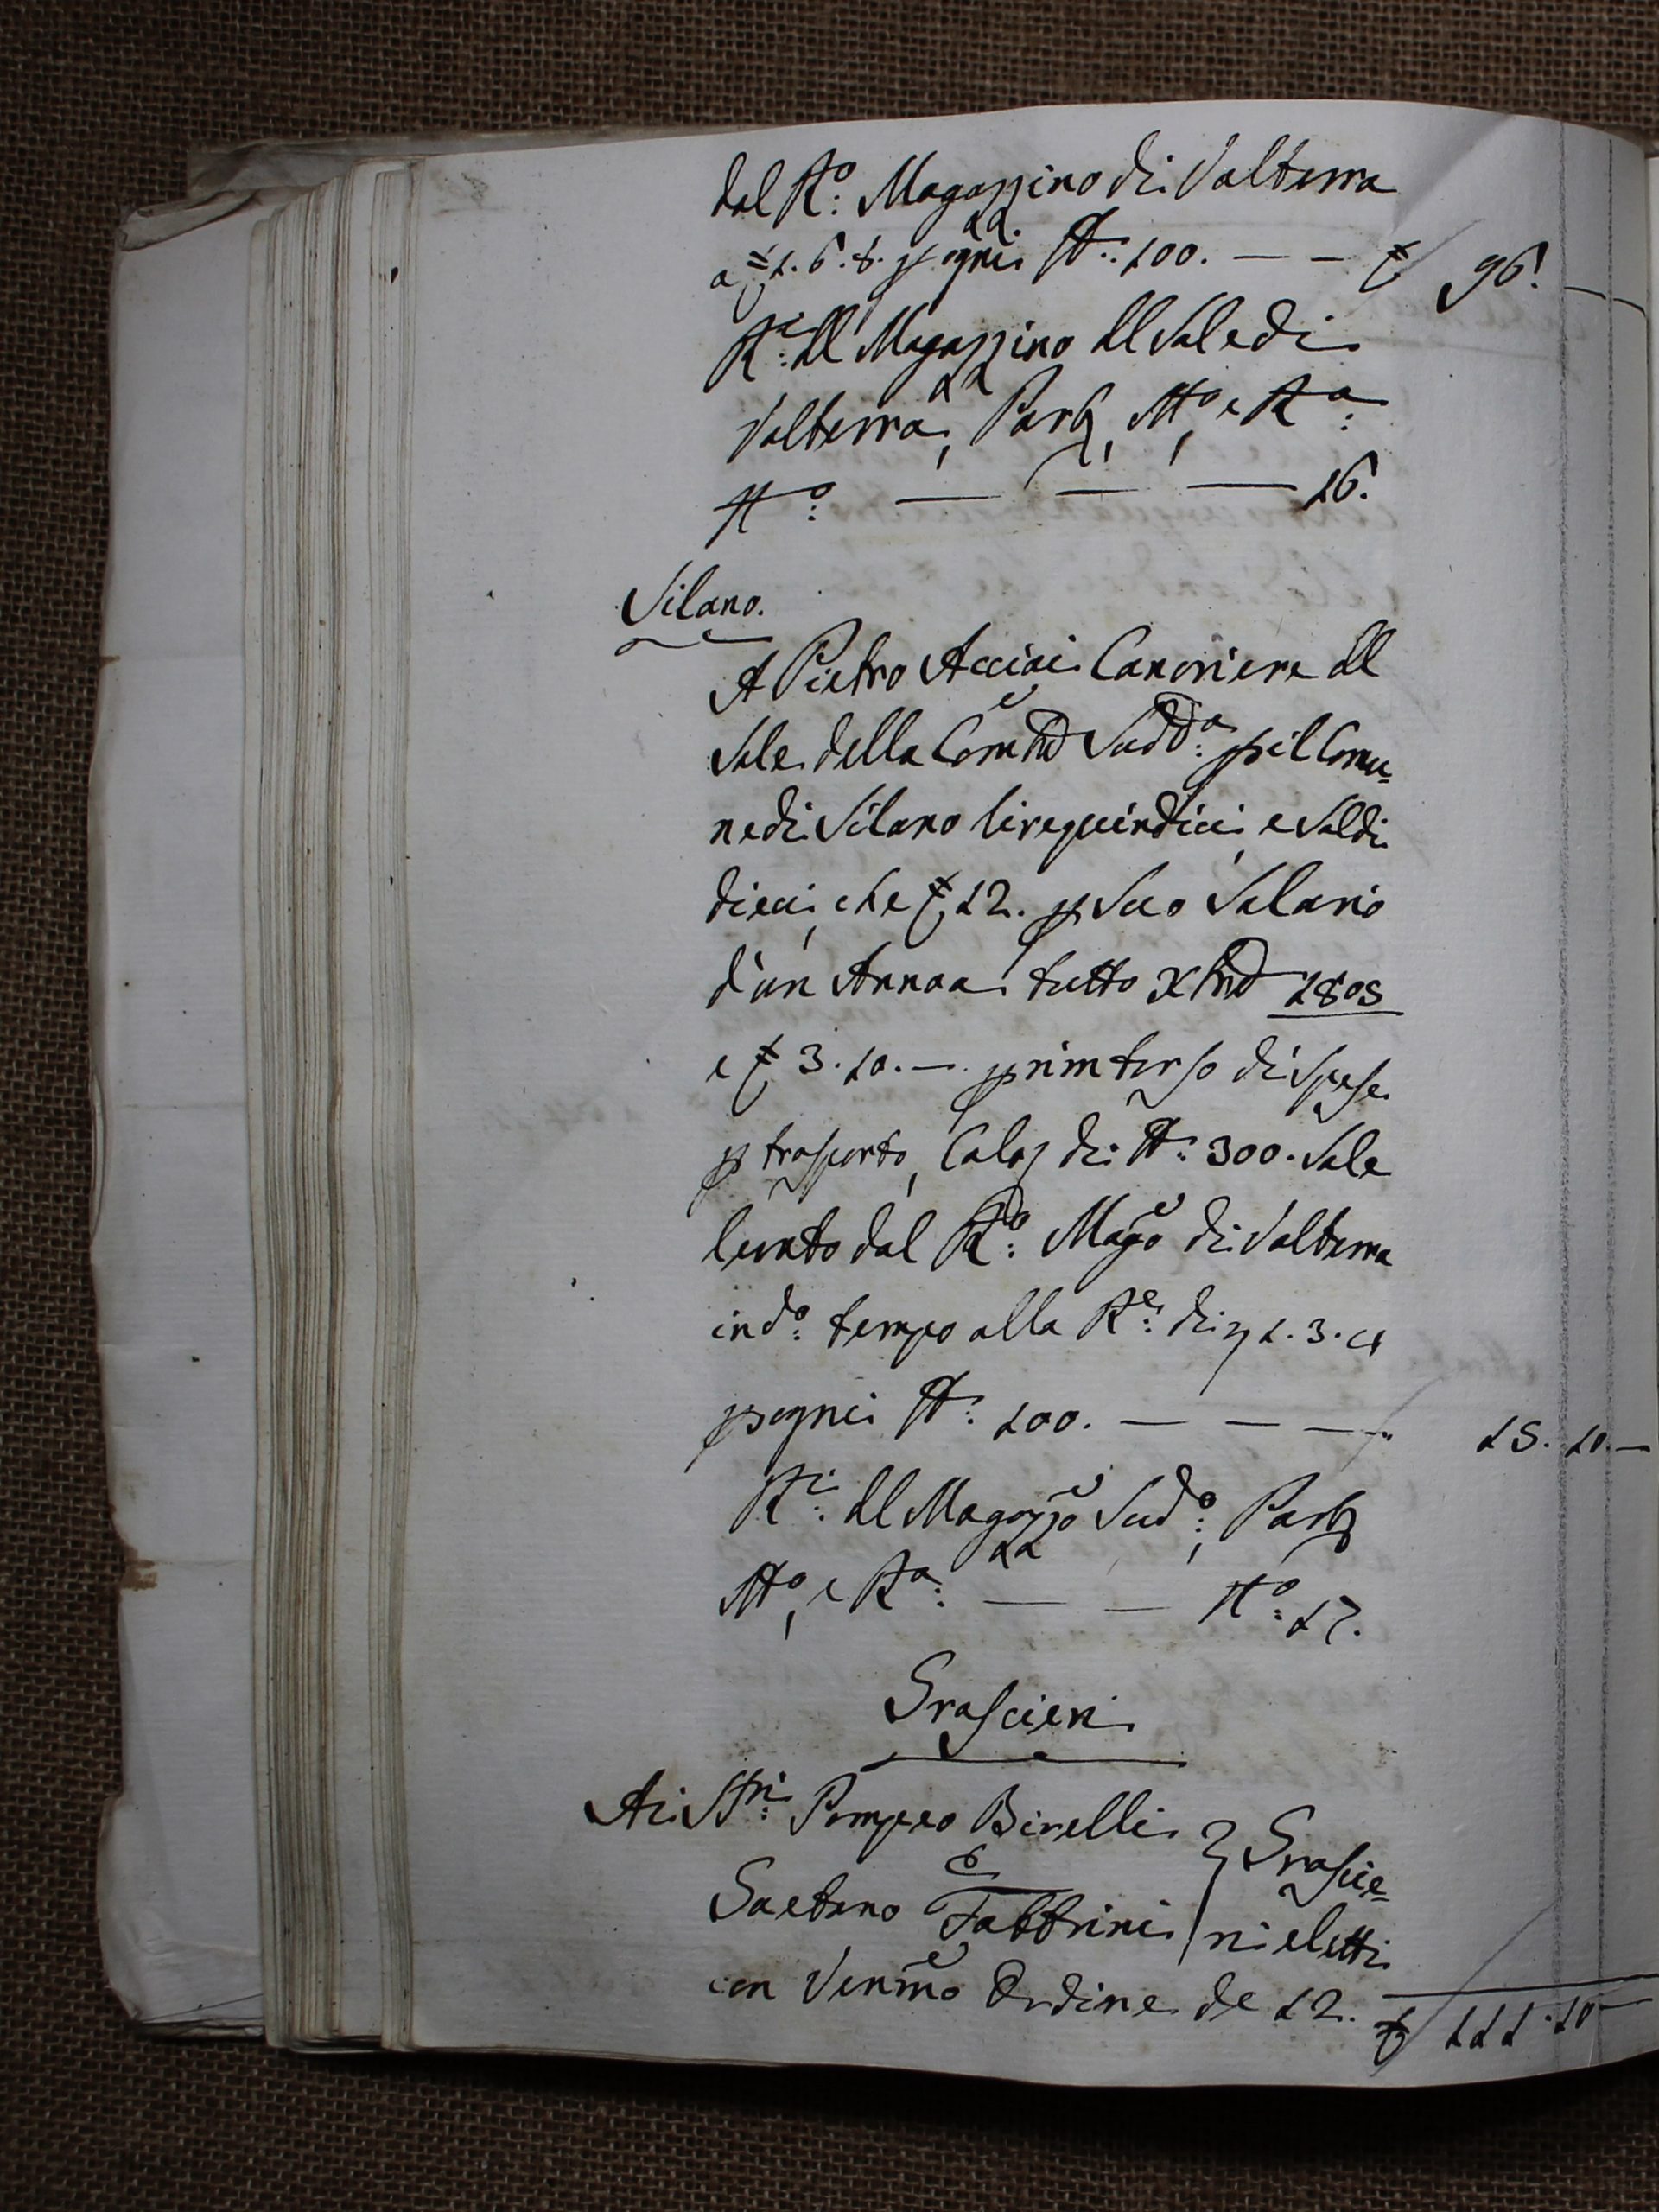 dal R.o Magazzino di Volterra
a £ 1.6.8. p ogni ℔: 100. — — £ 96. —
R.e del Magazzino del Sale di
Volterra, Parti, M.o, e R.a
N.o — — — 16.
Silano.
A Pietro Acciai Canoviere del
Sale della Com.tà Sudd.a p il Comu=
ne di Silano lire quindici, e Soldi
dieci, che £ 12. p Suo Salario
d'un Anno a tutto Xbre 1805
e £ 3.10.— p rimborso di Spese
p trasporto, Calo di ℔: 300. Sale
levato dal R.o Mag.o di Volterra
in d.o tempo alla R.e di £ 1.3.4
p ogni ℔: 100. — — — 15.10.—
R.e del Magazz.o Sud.o, Parti
M.o, e R.a — — N.o 17.
Grascieri
Ai SS.ri Pompeo Birelli
e } Grascie=
Gaetano Fabbrini ri eletti
con Ven.mo Ordine de 12.
£ 111.10—